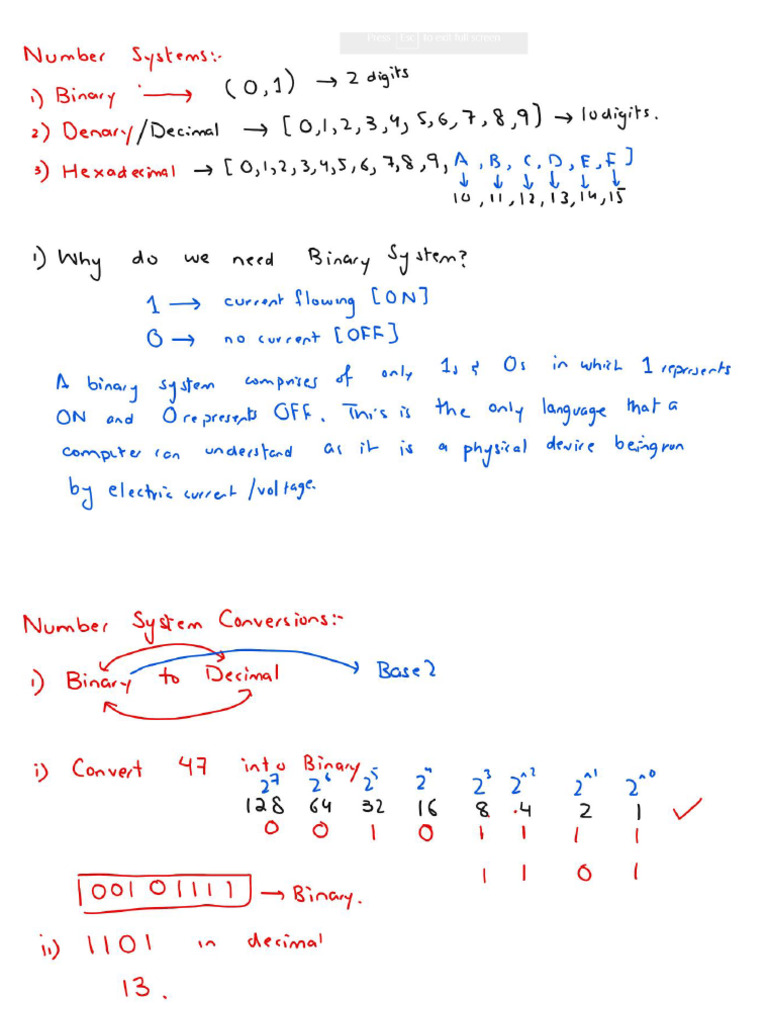 Press Esc to exit full screen
Number Systems:-
1) Binary :→ (0,1) → 2 digits
2) Denary/Decimal → [0,1,2,3,4,5,6,7,8,9] → 10 digits.
3) Hexadecimal → [0,1,2,3,4,5,6,7,8,9,A,B,C,D,E,F]
10,11,12,13,14,15
1) Why do we need Binary System?
1 → current flowing [ON]
0 → no current [OFF]
A binary system comprises of only 1s & 0s in which 1 represents
ON and 0 represents OFF. This is the only language that a
computer can understand as it is a physical device being run
by electric current/voltage.
Number System Conversions:-
1) Binary to Decimal → Base 2
i) Convert 47 into Binary
2^7 2^6 2^5 2^4 2^3 2^2 2^1 2^0
128 64 32 16 8 .4 2 1 ✓
0 0 1 0 1 1 1 1
1 1 0 1
00101111 → Binary.
ii) 1101 in decimal
13.